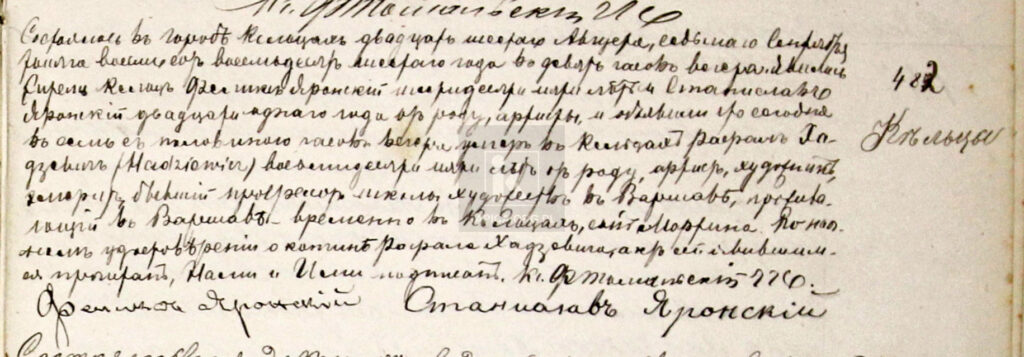 Состоялось въ городѣ Кельцахъ двадцать шестаго Августа, седьмаго Сентября
тысяча восемьсотъ восемьдесятъ шестаго года въ девять часовъ вечера. Явились
Феликсъ Яронскій шестидесяти лѣтъ и Станиславъ
Яронскій двадцати одного года отъ роду, артисты, и объявили что сегодня
въ семь съ половиною часовъ вечера умеръ въ Кельцахъ Рафаилъ Ха-
дзевичъ (Hadziewicz) восьмидесяти лѣтъ отъ роду, артистъ, художникъ,
эмеритъ, бывшій профессоръ школы художествъ въ Варшавѣ, прожива-
ющій въ Варшавѣ - временно въ Кѣльцахъ, сынъ По наоч-
номъ удостовѣреніи о кончинѣ Рафаила Хадзевича, актъ сей явившим-
ся прочитанъ, Нами и Ими подписанъ. Кс.
Феликсъ Яронскій Станиславъ Яронскій
482
Кѣльцы